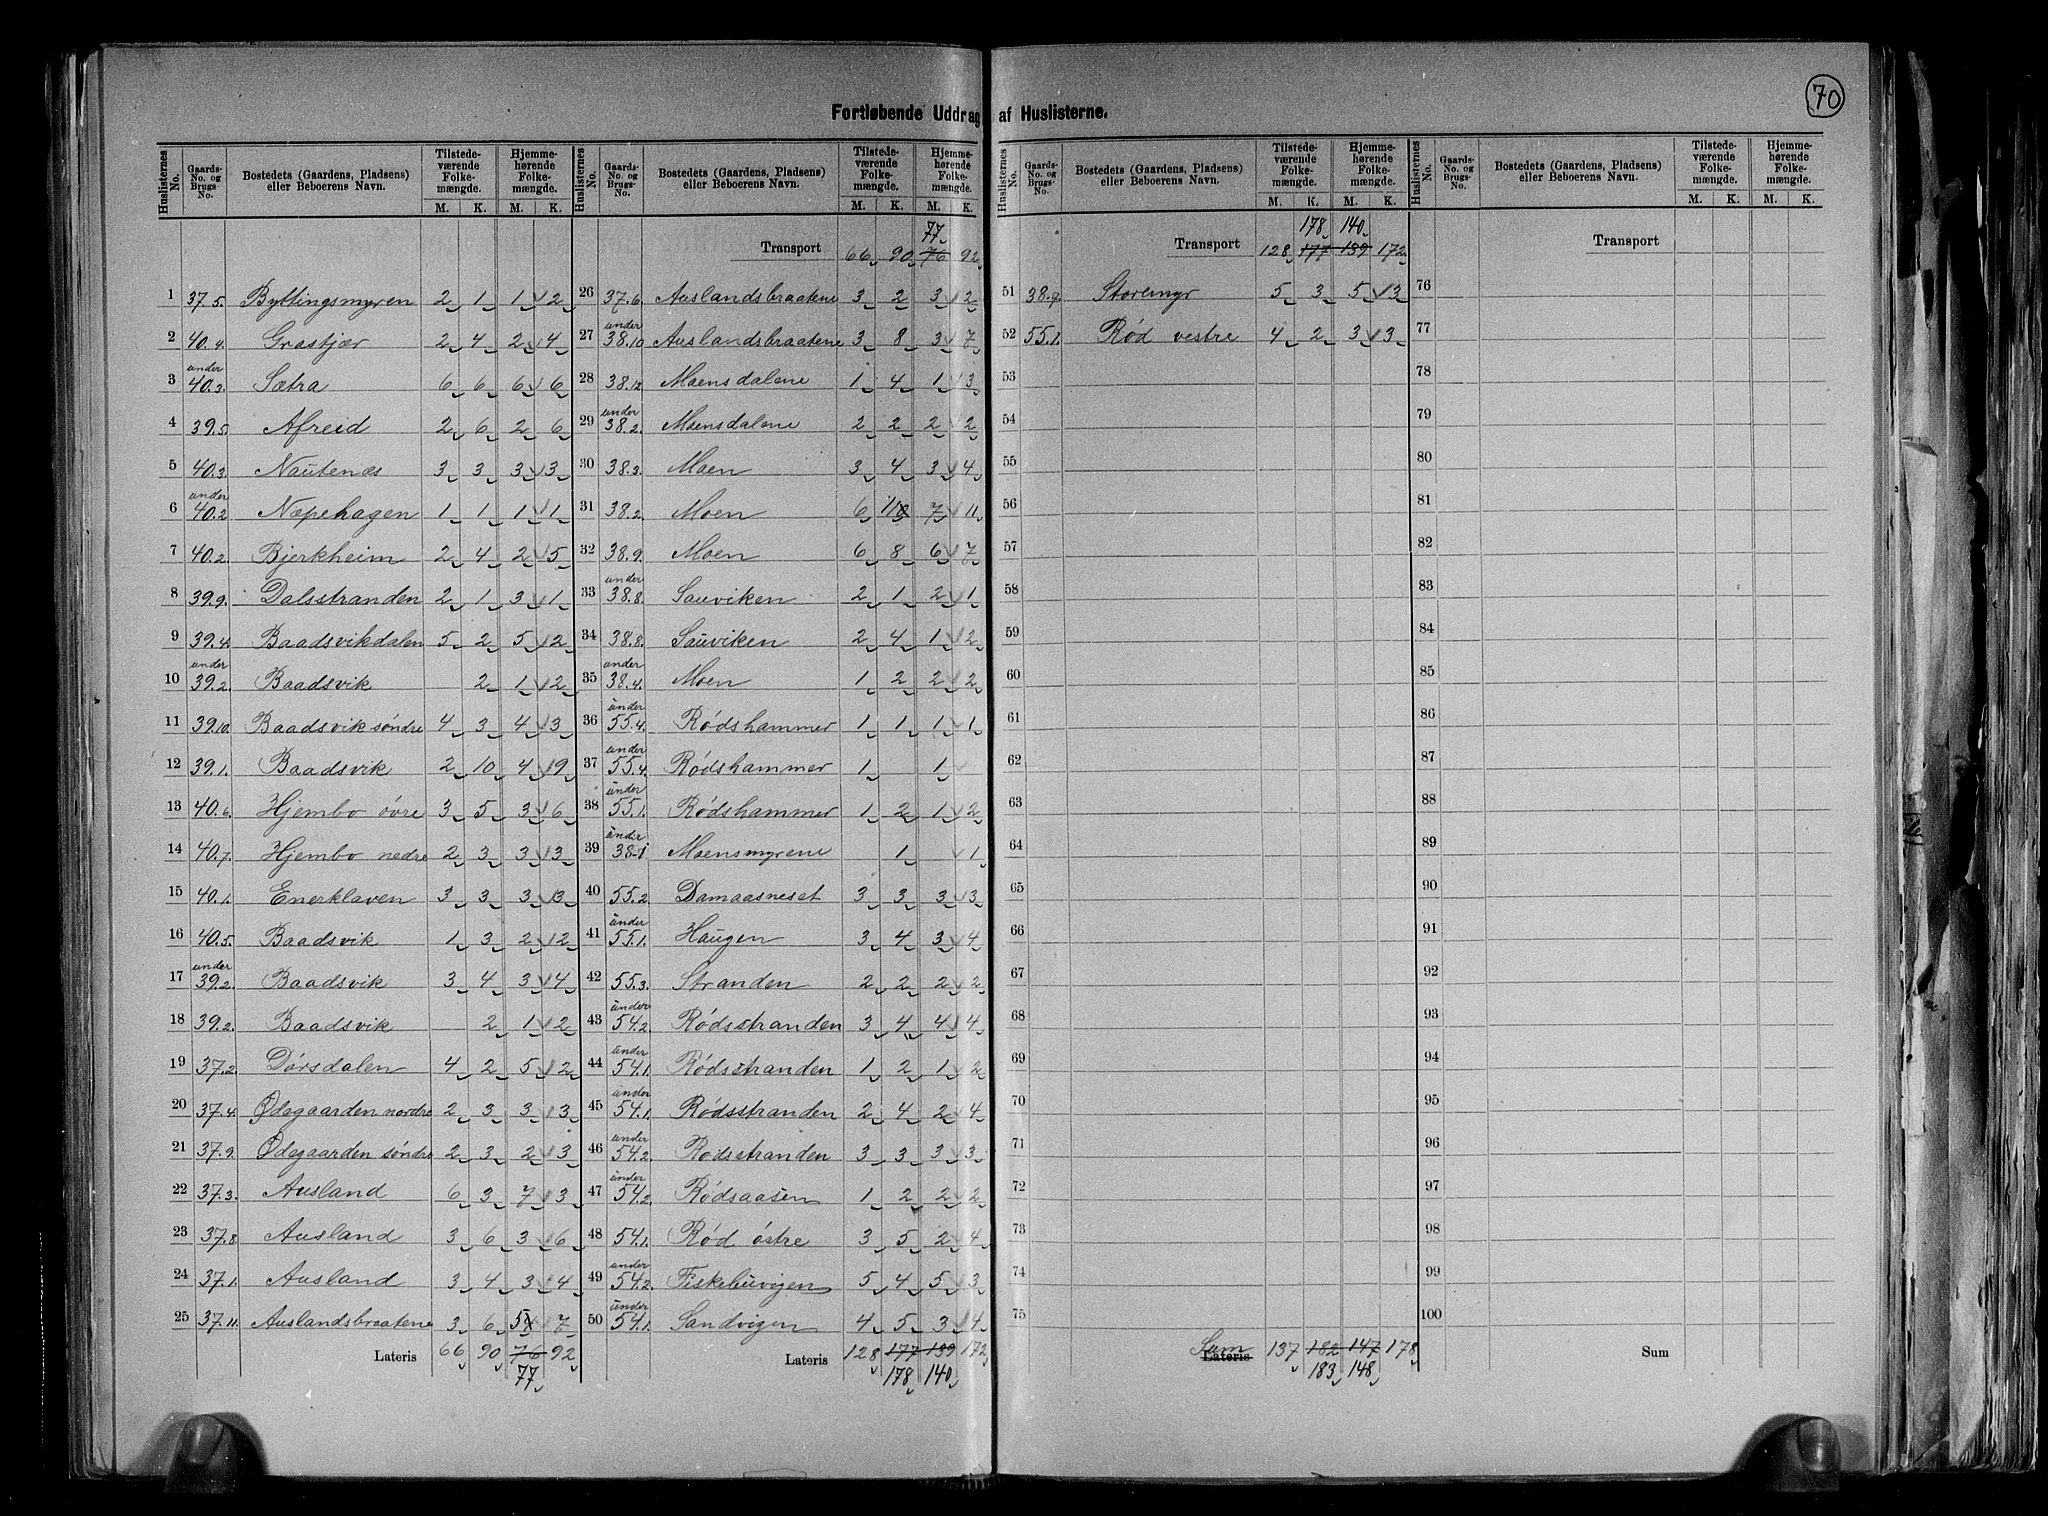 70
Fortløbende Uddrag af Huslisterne.
Huslisternes No. Gaards-No. og Brugs-No. Bostedets (Gaardens, Pladsens) eller Beboerens Navn. Tilstede-værende Folke-mængde. Hjemme-hørende Folke-mængde.
M. K. M. K.
1 37.5. Byttingsmyren 2 1 1 2
2 40.4. Grastjær 2 4 2 4
3 under 40.3. Sætra 6 6 6 6
4 39.5. Afreid 2 6 2 6
5 40.3. Nautenæs 3 3 3 3
6 under 40.2. Næpehagen 1 1 1 1
7 40.2. Bjerkheim 2 4 2 5
8 39.9. Dalsstranden 2 1 3 1
9 39.4. Baadsvikdalen 5 2 5 2
10 under 39.2. Baadsvik 2 1 2
11 39.10. Baadsvik søndre 4 3 4 3
12 39.1. Baadsvik 2 10 4 9
13 40.6. Hjembo övre 3 5 3 6
14 40.7. Hjembo nedre 2 3 3 3
15 40.1. Enerklaven 3 3 3 3
16 40.5. Baadsvik 1 3 2 2
17 under 39.2. Baadsvik 3 4 3 4
18 39.2. Baadsvik 2 1 2
19 37.2. Dørsdalen 4 2 5 2
20 37.4. Ødegaarden nordre 2 3 3 3
21 37.9. Ødegaarden søndre 2 3 2 3
22 37.3. Ausland 6 3 7 3
23 37.8. Ausland 3 6 3 6
24 37.1. Ausland 3 4 3 4
25 37.11. Auslandsbraatene 3 6 5 7
Lateris 66 90 76 92
77
Huslisternes No. Gaards-No. og Brugs-No. Bostedets (Gaardens, Pladsens) eller Beboerens Navn. Tilstede-værende Folke-mængde. Hjemme-hørende Folke-mængde.
M. K. M. K.
77
Transport 66 90 76 92
26 37.6. Auslandsbraatene 3 2 3 2
27 under 38.10 Auslandsbraatene 3 8 3 7
28 38.12 Moensdalene 1 4 1 3
29 under 38.2. Moensdalene 2 2 2 2
30 38.3. Moen 3 4 3 4
31 38.2. Moen 6 11 7 11
32 38.9. Moen 6 8 6 7
33 under 38.8. Sauviken 2 1 2 1
34 38.8. Sauviken 2 4 1 2
35 under 38.4. Moen 1 2 2 2
36 under 55.4. Rødshammer 1 1 1 1
37 under 55.4. Rødshammer 1 1
38 under 55.1. Rødshammer 1 2 1 2
39 under 38.1 Moensmyrene 1 1
40 55.2. Damaasneset 3 3 3 3
41 under 55.1. Haugen 3 4 3 4
42 55.3. Stranden 2 2 2 2
43 under 54.2. Rødsstranden 3 4 4 4
44 under 54.1. Rødsstranden 1 2 1 2
45 under 54.1. Rødsstranden 2 4 2 4
46 under 54.2. Rødsstranden 3 3 3 3
47 under 54.2. Rødsaasen 1 2 2 2
48 54.1. Rød østre 3 5 2 4
49 under 54.2. Fiskebuvigen 5 4 5 3
50 under 54.1. Sandvigen 4 5 3 4
Lateris 128 177 139 172
178 140
Huslisternes No. Gaards-No. og Brugs-No. Bostedets (Gaardens, Pladsens) eller Beboerens Navn. Tilstede-værende Folke-mængde. Hjemme-hørende Folke-mængde.
M. K. M. K.
178 140
Transport 128 177 139 172
51 38.7. Storemyr 5 3 5 3
52 55.1. Rød vestre 4 2 3 3
53
54
55
56
57
58
59
60
61
62
63
64
65
66
67
68
69
70
71
72
73
74
75
Sum Lateris 137 182 147 178
183 148
Huslisternes No. Gaards-No. og Brugs-No. Bostedets (Gaardens, Pladsens) eller Beboerens Navn. Tilstede-værende Folke-mængde. Hjemme-hørende Folke-mængde.
M. K. M. K.
Transport
76
77
78
79
80
81
82
83
84
85
86
87
88
89
90
91
92
93
94
95
96
97
98
99
100
Sum